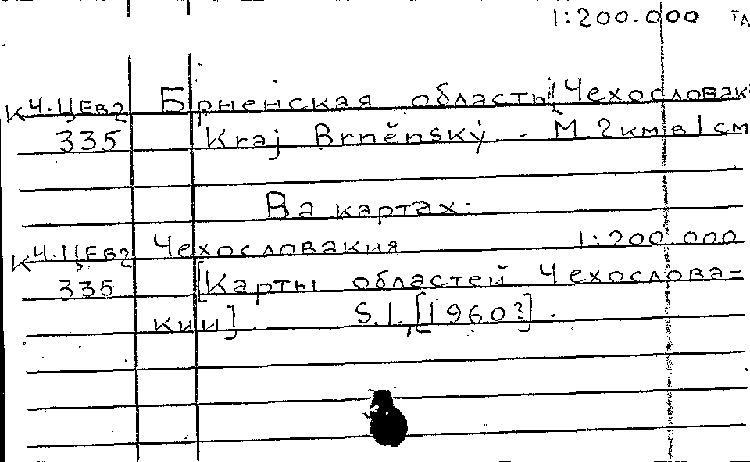 1:200.000
К Ч-ЦЕв2 Брненская область Чехословак
335 Kraj Brněnský - М 2 км в 1 см
Ва картах:
К Ч-ЦЕв2 Чехословакия 1:200.000
335 [Карты областей Чехослова=
кии] S.l., [1960?].